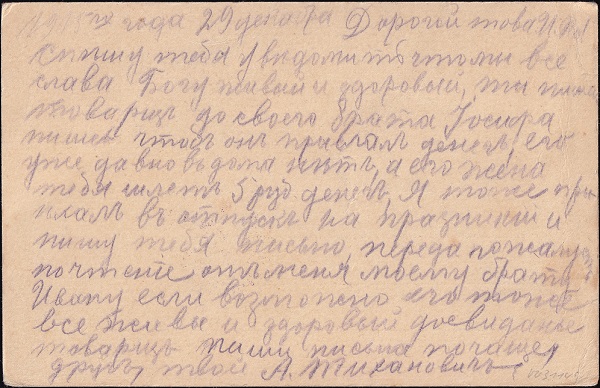 года 29 декабря Дорогой това
пишу тебя уведомит что мы все
слава Богу живыи и здоровыи, ты
товарищъ до своего брата Іосифа
пишеш чтобъ онъ прислалъ денегъ, его
уже давно въ дома нѣтъ, а его жена
тебя шлетъ 5 руб денегъ, Я тоже при
ехалъ въ отпускъ на празники и
пишу тебя письмо, переда пожалуста
почтеніе отъ меня моему брату
Ивану если возможно его тоже
все живы и здоровыи досвиданье
товарищъ пиши письма почаще,
другъ твой А. Тихановичъ